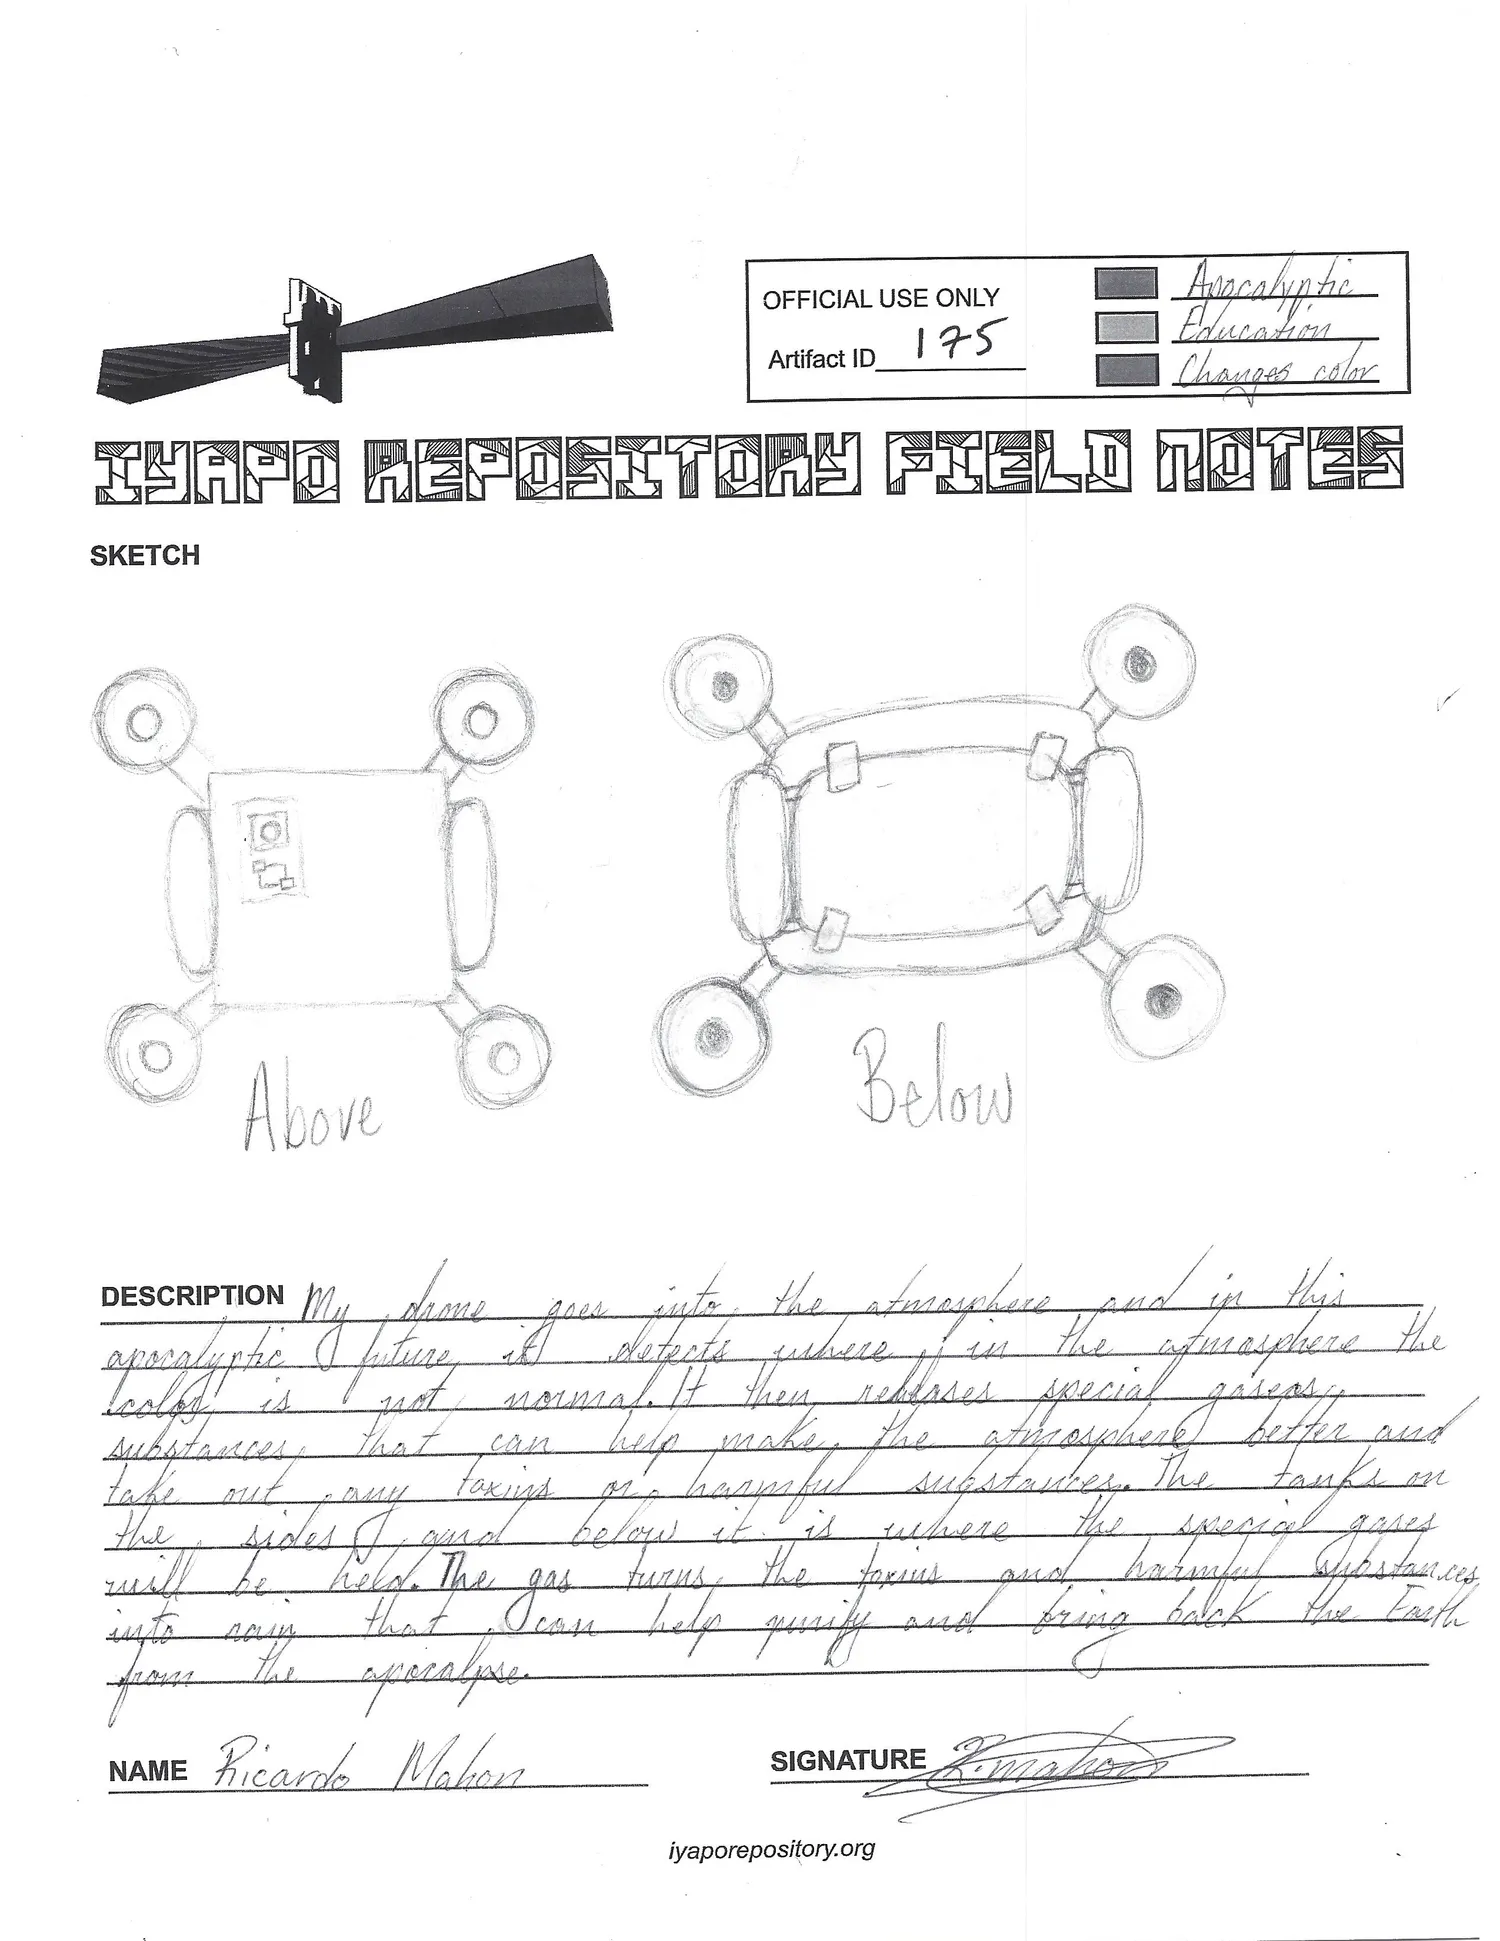 OFFICIAL USE ONLY
Artifact ID 175
Apocalyptic
Education
Changes color
IYAPO REPOSITORY FIELD NOTES
SKETCH
Above
Below
DESCRIPTION My drone goes into the atmosphere and in this
apocalyptic future, it detects where in the atmosphere the
color is not normal. It then releases special gaseas
substances, that can help make the atmosphere better and
take out any toxins or harmful substances. The tanks on
the sides and below it is where the special gases
will be held. The gas turns the toxins and harmful substances
into rain that can help purify and bring back the Earth
from the apocalpse.
NAME Ricardo Mahon
SIGNATURE R. Mahon
iyaporepository.org